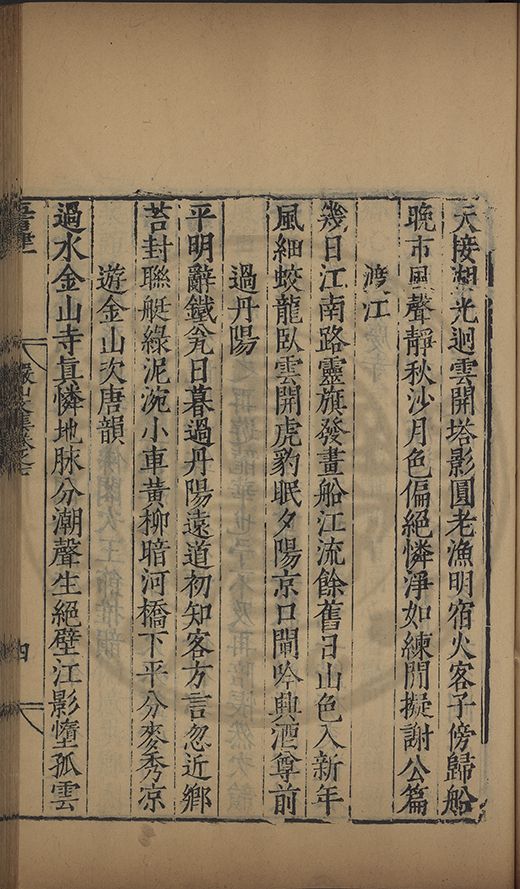 天接湖光迥雲開塔影圓老漁明宿火客子傍歸船
晚市風聲靜秋沙月色偏絕憐淨如練閒擬謝公篇
渡江
幾日江南路靈旗發畫船江流餘舊日山色入新年
風細蛟龍臥雲開虎豹眠夕陽京口閘吟興酒尊前
過丹陽
平明辭鐵瓮日暮過丹陽遠道初知客方言忽近鄉
苔封聯艇綠泥涴小車黃柳暗河橋下平分麥秀凉
遊金山次唐韻
過水金山寺真憐地脉分潮聲生絕壁江影墮孤雲
四